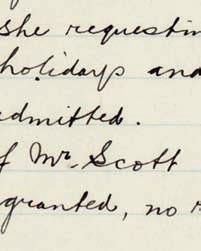 she requestin
holidays and
admitted.
f Mr. Scott
granted, no